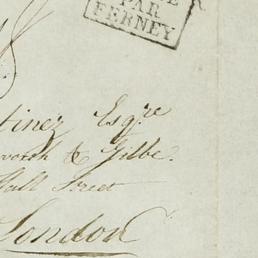 PAR
FERNEY
tinez Esqre
worth & Gilbe.
Hall Street
London